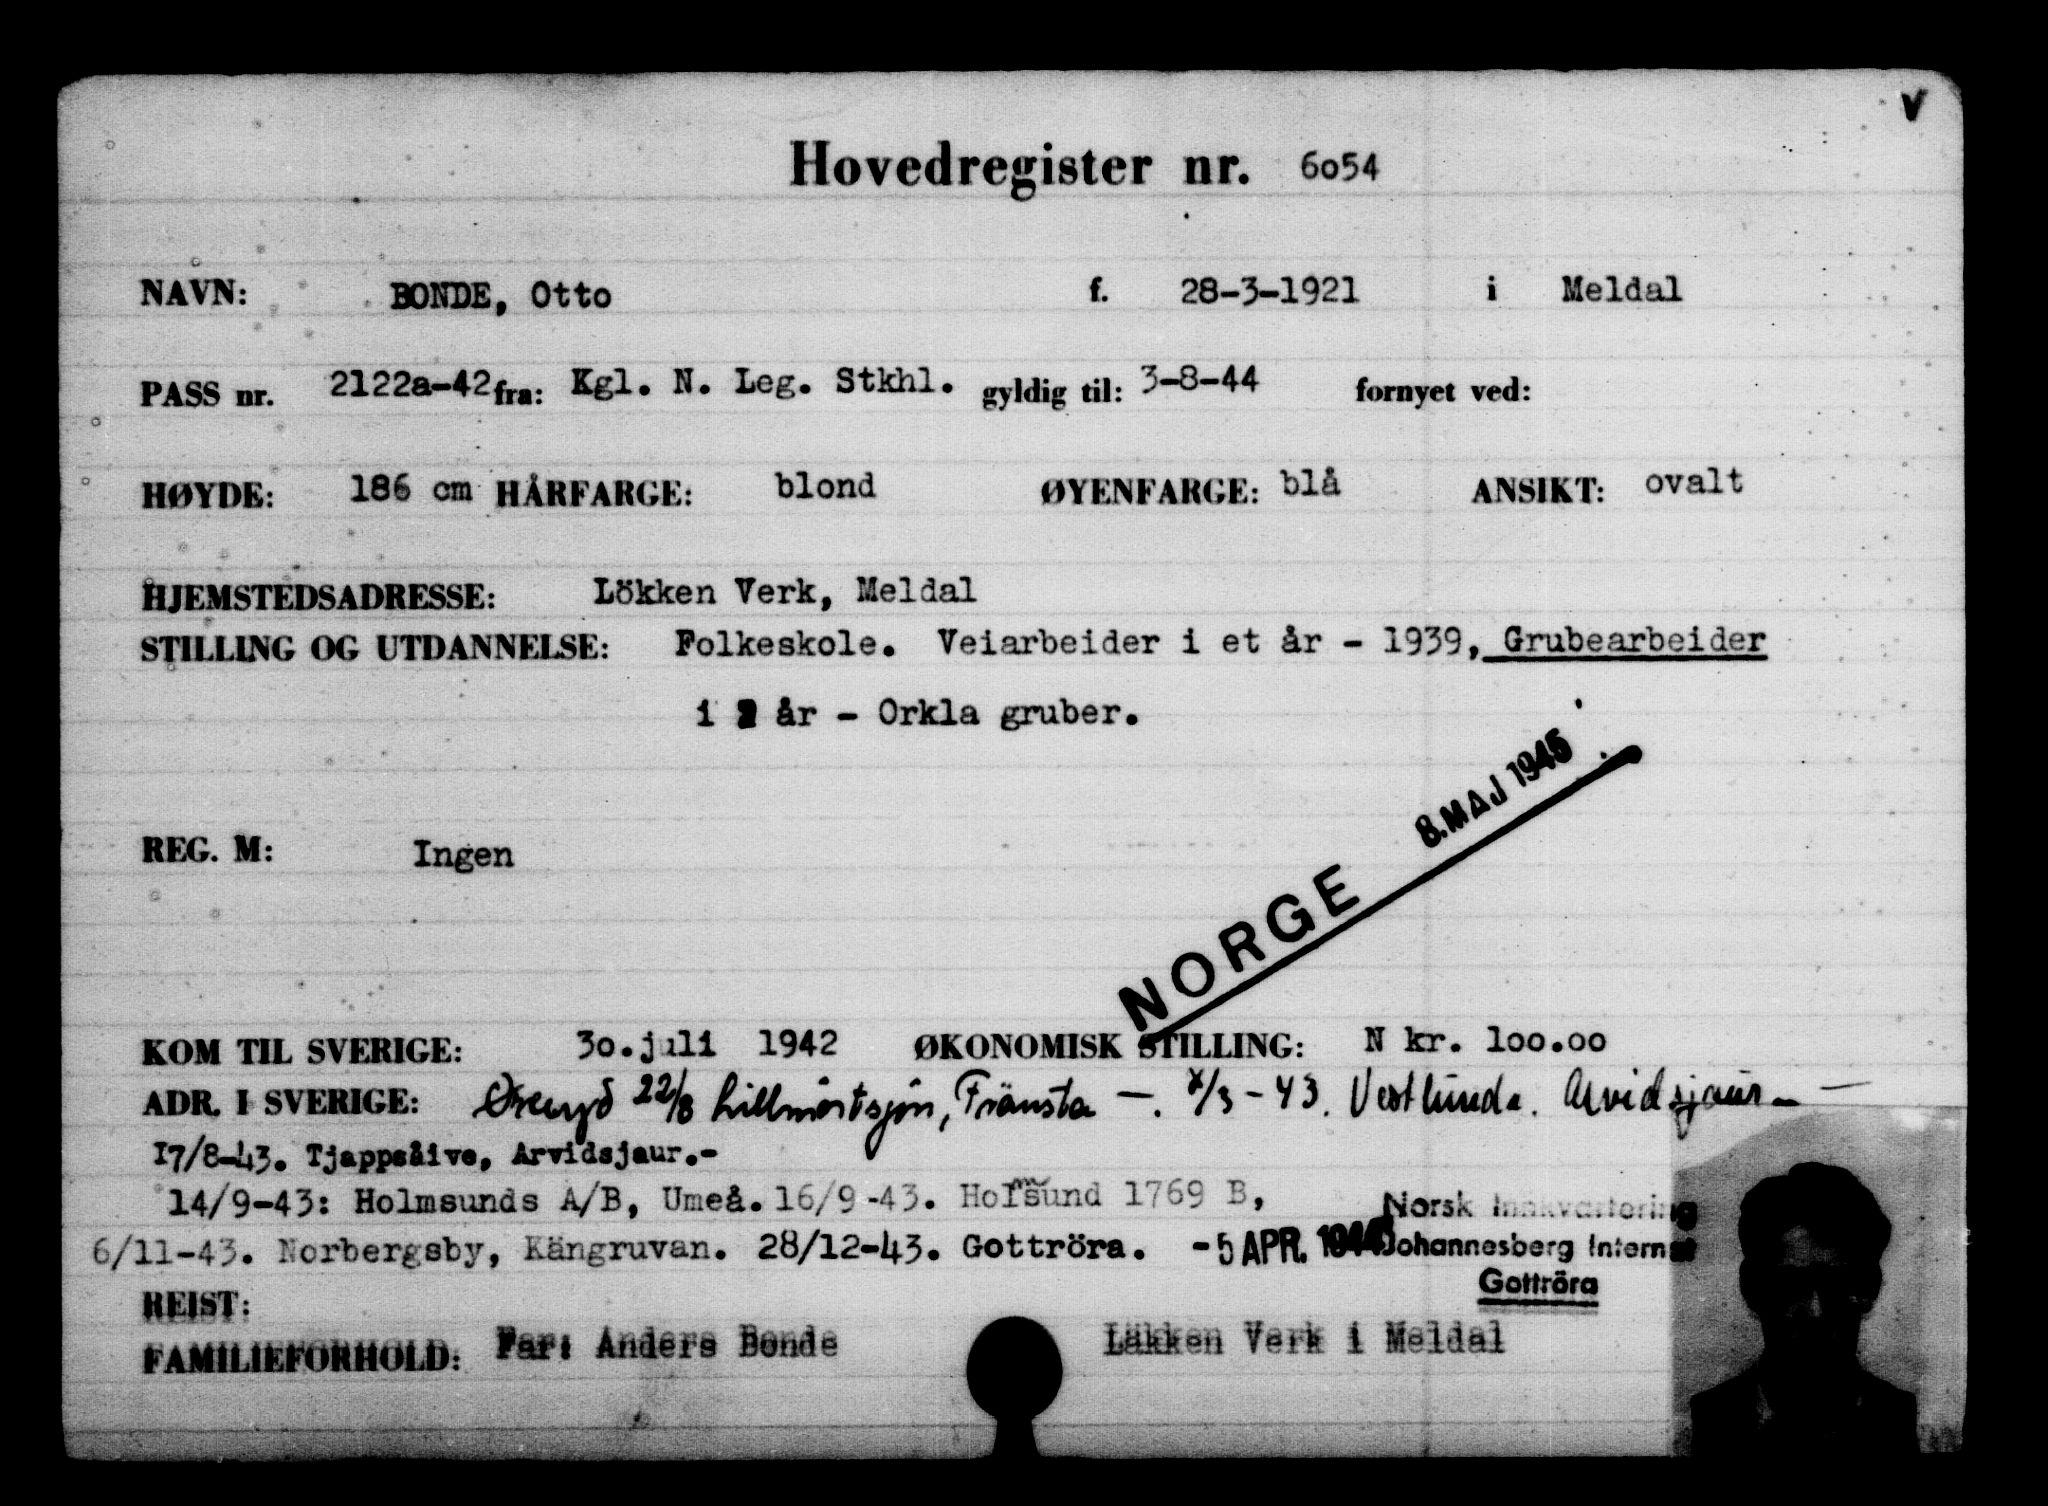 V
Hovedregister nr. 6o54
NAVN: BONDE, Otto f. 28-3-1921 i Meldal
PASS nr. 2122a-42 fra: Kgl. N. Leg. Stkhl. gyldig til: 3-8-44 fornyet ved:
HØYDE: 186 cm HÅRFARGE: blond ØYENFARGE: blå ANSIKT: ovalt
HJEMSTEDSADRESSE: Lökken Verk, Meldal
STILLING OG UTDANNELSE: Folkeskole. Veiarbeider i et år - 1939, Grubearbeider
i 2 år - Orkla gruber.
8. MAJ 1945
REG. M: Ingen
NORGE
KOM TIL SVERIGE: 3o.juli 1942 ØKONOMISK STILLING: N kr. loo.oo
ADR. I SVERIGE: 22/8 Lillmörtsjön, Fränsta -. /3-43. Vestlunda. Arvidsjaur. -
17/8-43. Tjappsåive, Arvidsjaur.-
14/9-43: Holmsunds A/B, Umeå. 16/9-43. Holmsund 1769 B,
Norsk Innkvartering
6/11-43. Norbergsby, Kängruvan. 28/12-43. Gottröra. -5 APR. 1944 Johannesberg Internat
Gottröra
REIST:
FAMILIEFORHOLD: Far: Anders Bonde Läkken Verk i Meldal